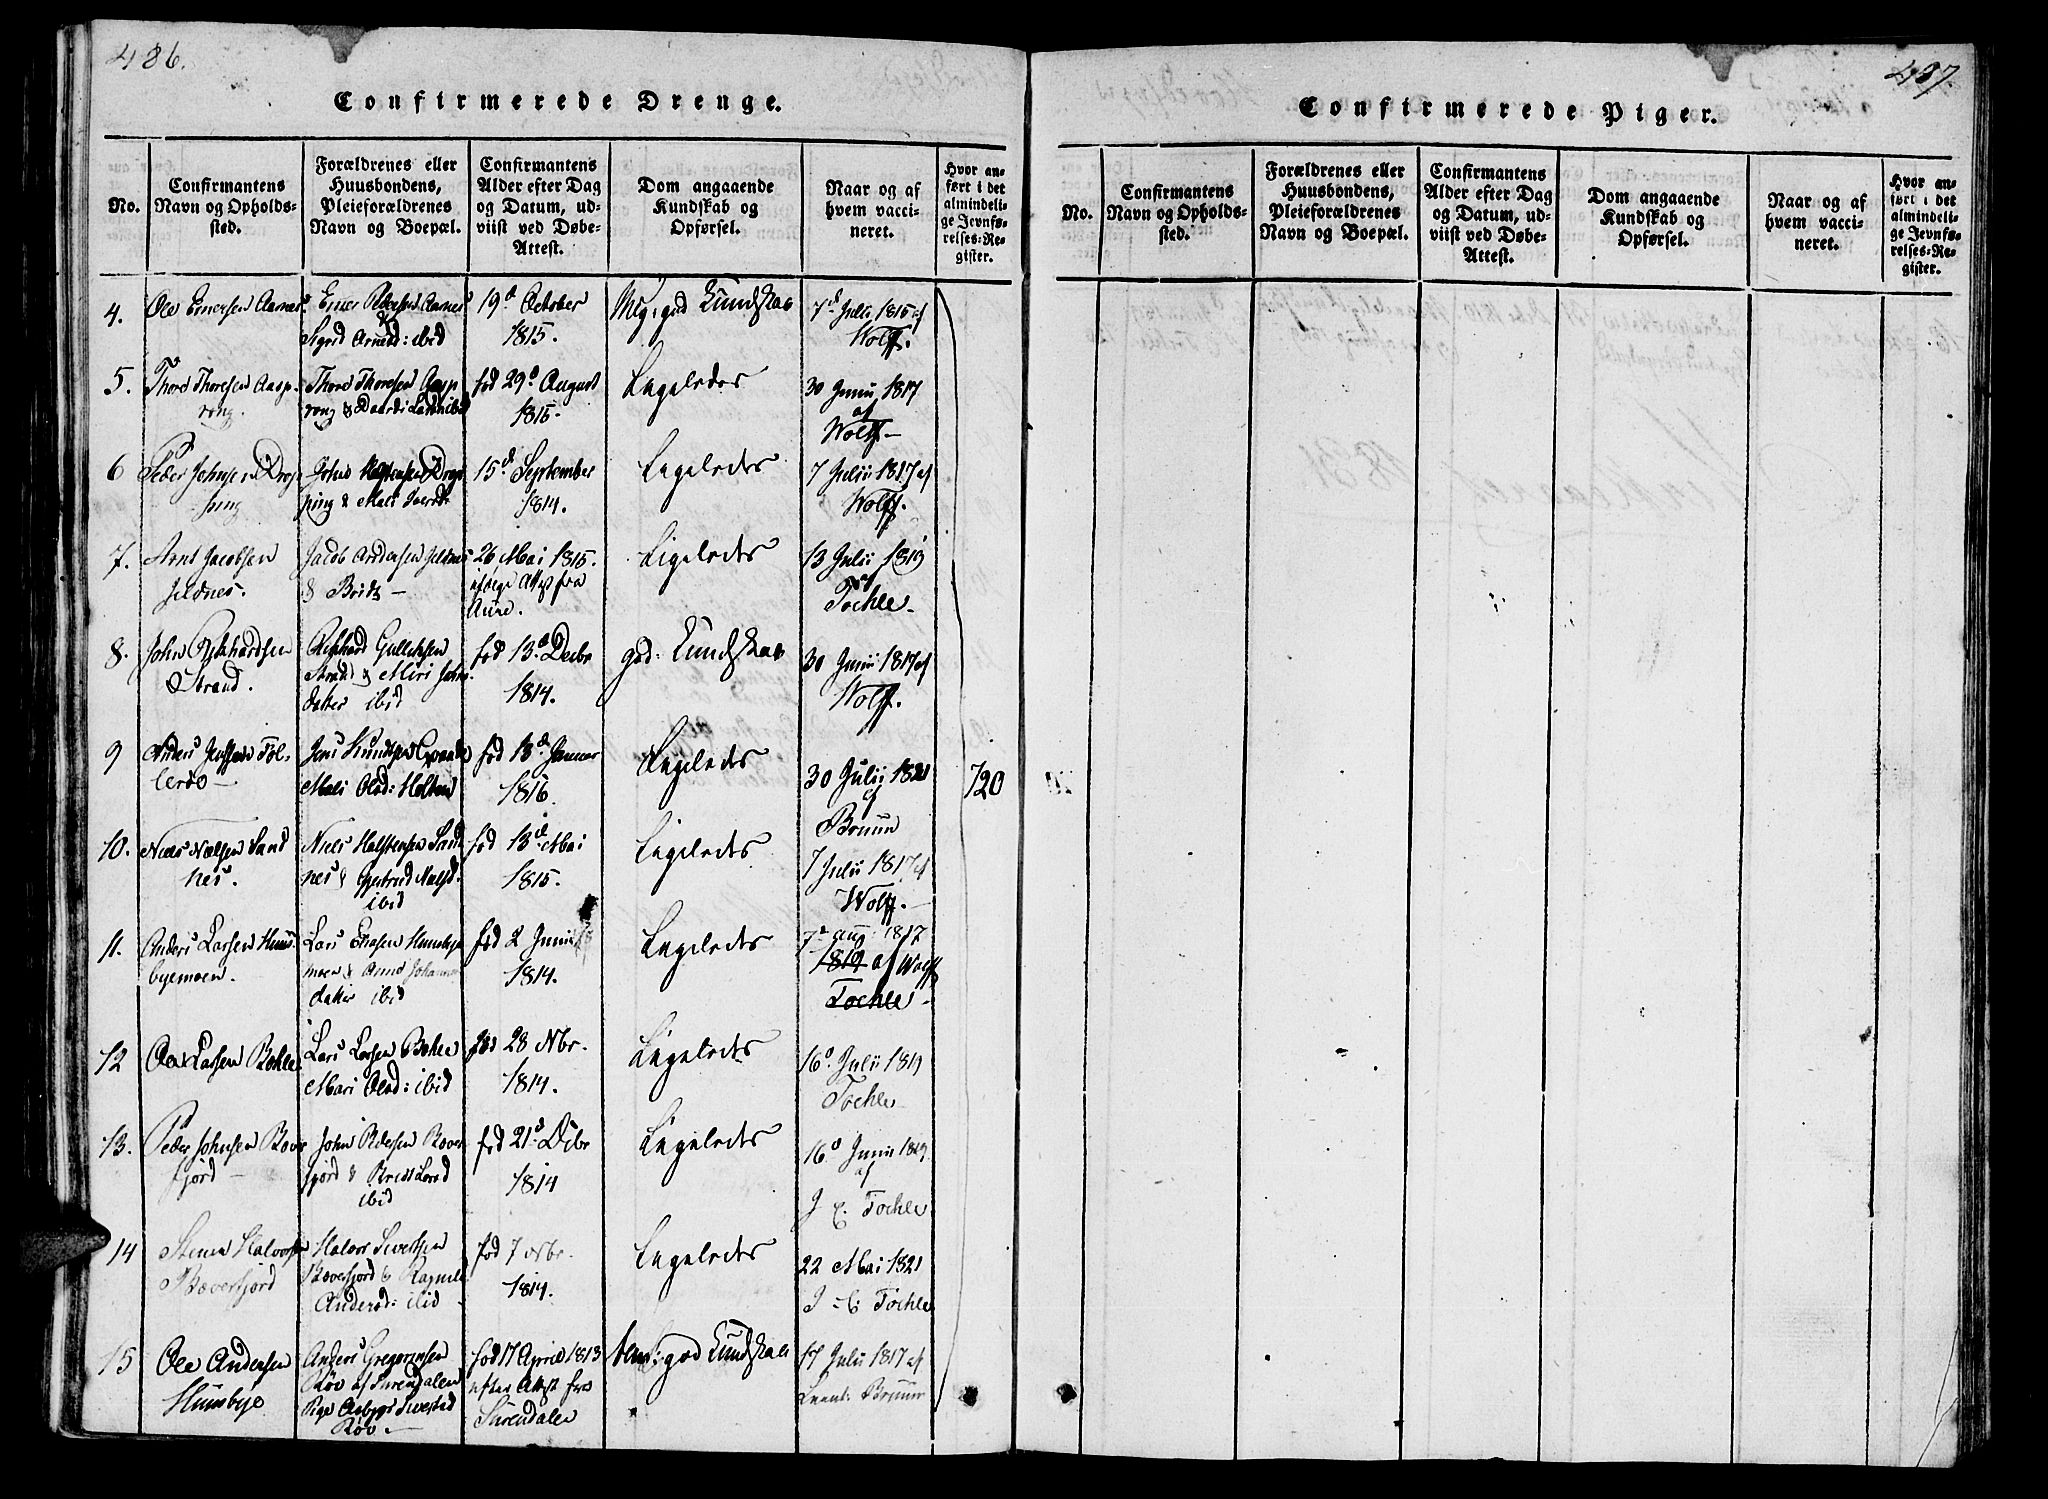 486.
Confirmerede Drenge.
No.
Confirmantens
Navn og Opholds-
sted.
Forældrenes eller
Huusbondens,
Pleieforældrenes
Navn og Boepæl.
Confirmantens
Alder efter Dag
og Datum, ud-
viist ved Døbe-
Attest.
Dom angaaende
Kundskab og
Opførsel.
Naar og af
hvem vacci-
neret.
Hvor an-
ført i det
almindeli-
ge Jevnfø-
relses-Re-
gister.
4.
Ole Ernersen Aarnes
Erner Pedersen Aarnes
&
Sigrid Arnesd: ibid
19d October
1815.
Mg: god Kundskab
7d Julii 1815 af
Wolff.
5.
Thore Thoresen Aasp
rong.
Thore Thoresen Aasp
rong &
fød 29d August
1815.
Ligeledes
30 Junii 1817
af
Wolff
6
Peder Johnsen Drøp
ping
John Halstensen Drøp
ping & Mali
15d September
1814.
Ligeledes
7 Julii 1817 af
Wolff.
7.
Arnt Jacobsen
Jeldnes.
Jacob Andersen Jeldnes
& Brit
26 Mai 1815.
ifølge Attest fra
Aure.
Ligeledes
13 Julii 1819
af
Tochle
8.
John
Strand.
Gullichsen
Strand & Miri John
datter ibid
fød 13d Decbr
1814.
god Kundskab
30 Junii 1817 af
Wolff.
9
Anders Jensen Tøl-
lerøe
Jens Knudsen
Mali Olsd: Holten
fød 18d Januar
1816.
Ligeledes
30 Julii 1821
af
Bruun
720
10.
Niels Nielsen Sand
nes.
Niels Halstensen Sand
nes & Gjertrud Nielsd.
ibid
fød 13d Mai
1815.
Ligeledes
7 Julii 1817 af
Wolff.
11.
Anders Larsen Huus-
byemoen.
Lars Husebye
moen & Anne Johannes
datter ibid
fød 2 Junii
1814.
Ligeledes
7d Aug: 1817
1819 af Wolff
Tochle
12
Ole Larsen Bøhle
Lars Larsen Bøhle
Mari Olsd: ibid
fød 28 Nbr.
1814.
Ligeledes
16d Julii 1819
Tochle
13.
Peder Johnsen Bæver
fjord
John Pedersen Bæver
fjord & Brit Larsd
ibid
fød 21d Dcbr
1814
Ligeledes
16d Junii 1819.
af
J C. Tochle
14
Stener Halvorsen
Bæverfjord
Halvor Sivertsen
Bæverfjord & Ragnild
Andersd: ibid
fød 7 Nbr.
1814.
Ligeledes
22 Mai 1821
J C: Tochle
15
Ole Andersen
Huusbye
Anders Gregoriusen
Røv af Surendalen
Pige Aasbjør Sivertsd
Røv.
fød 17 April 1813
efter Attest fra
Surendalen
god Kundskab
17 Julii 1817 af
Bruun
437.
Confirmerede Piger.
No.
Confirmantens
Navn og Opholds-
sted.
Forældrenes eller
Huusbondens,
Pleieforældrenes
Navn og Boepæl.
Confirmantens
Alder efter Dag
og Datum, ud-
viist ved Døbe-
Attest.
Dom angaaende
Kundskab og
Opførsel.
Naar og af
hvem vacci-
neret.
Hvor an-
ført i det
almindeli-
ge Jevnfø-
relses-Re-
gister.